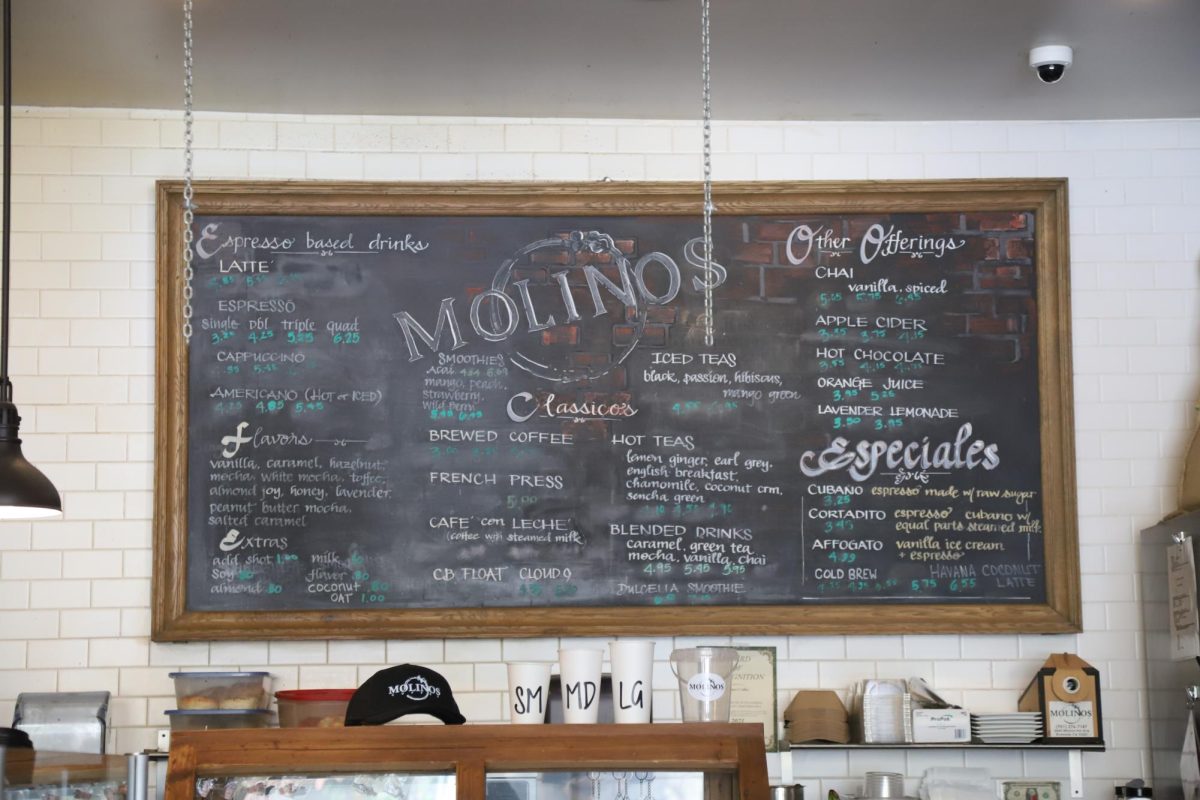 Espresso based drinks
LATTE
ESPRESSO
single dbl triple quad
3.25 4.25 5.25 6.25
CAPPUCCINO
AMERICANO (HOT or ICED)
4.25 4.85 5.45
Flavors
vanilla, caramel, hazelnut,
mocha, white mocha, toffee,
almond joy, honey, lavender,
peanut butter mocha,
salted caramel
Extras
add shot 1.00
soy .80
almond .80
milk
flavor .80
coconut .80
OAT 1.00
MOLINOS
SMOOTHIES
Acai
mango, peach,
strawberry,
Wild Berry
Classico's
BREWED COFFEE
FRENCH PRESS
5.00
CAFE con LECHE
(coffee with steamed milk)
CB FLOAT CLOUD 9
ICED TEAS
black, passion, hibiscus,
mango green
HOT TEAS
lemon ginger, earl grey,
english breakfast,
chamomile, coconut crm,
sencha green
BLENDED DRINKS
caramel, green tea
mocha, vanilla, chai
4.95 5.45 5.95
DULCELIA SMOOTHIE
Other Offerings
CHAI
vanilla, spiced
APPLE CIDER
HOT CHOCOLATE
ORANGE JUICE
3.95 5.25
LAVENDER LEMONADE
3.50 3.95
Especiales
CUBANO espresso made w/ raw sugar
3.25
CORTADITO espresso cubano w/
3.45 equal parts steamed milk
AFFOGATO vanilla ice cream
4.99 + espresso
COLD BREW HAVANA COCONUT
5.75 6.55 LATTE
MOLINOS
SM
MD
LG
MOLINOS
MOLINOS